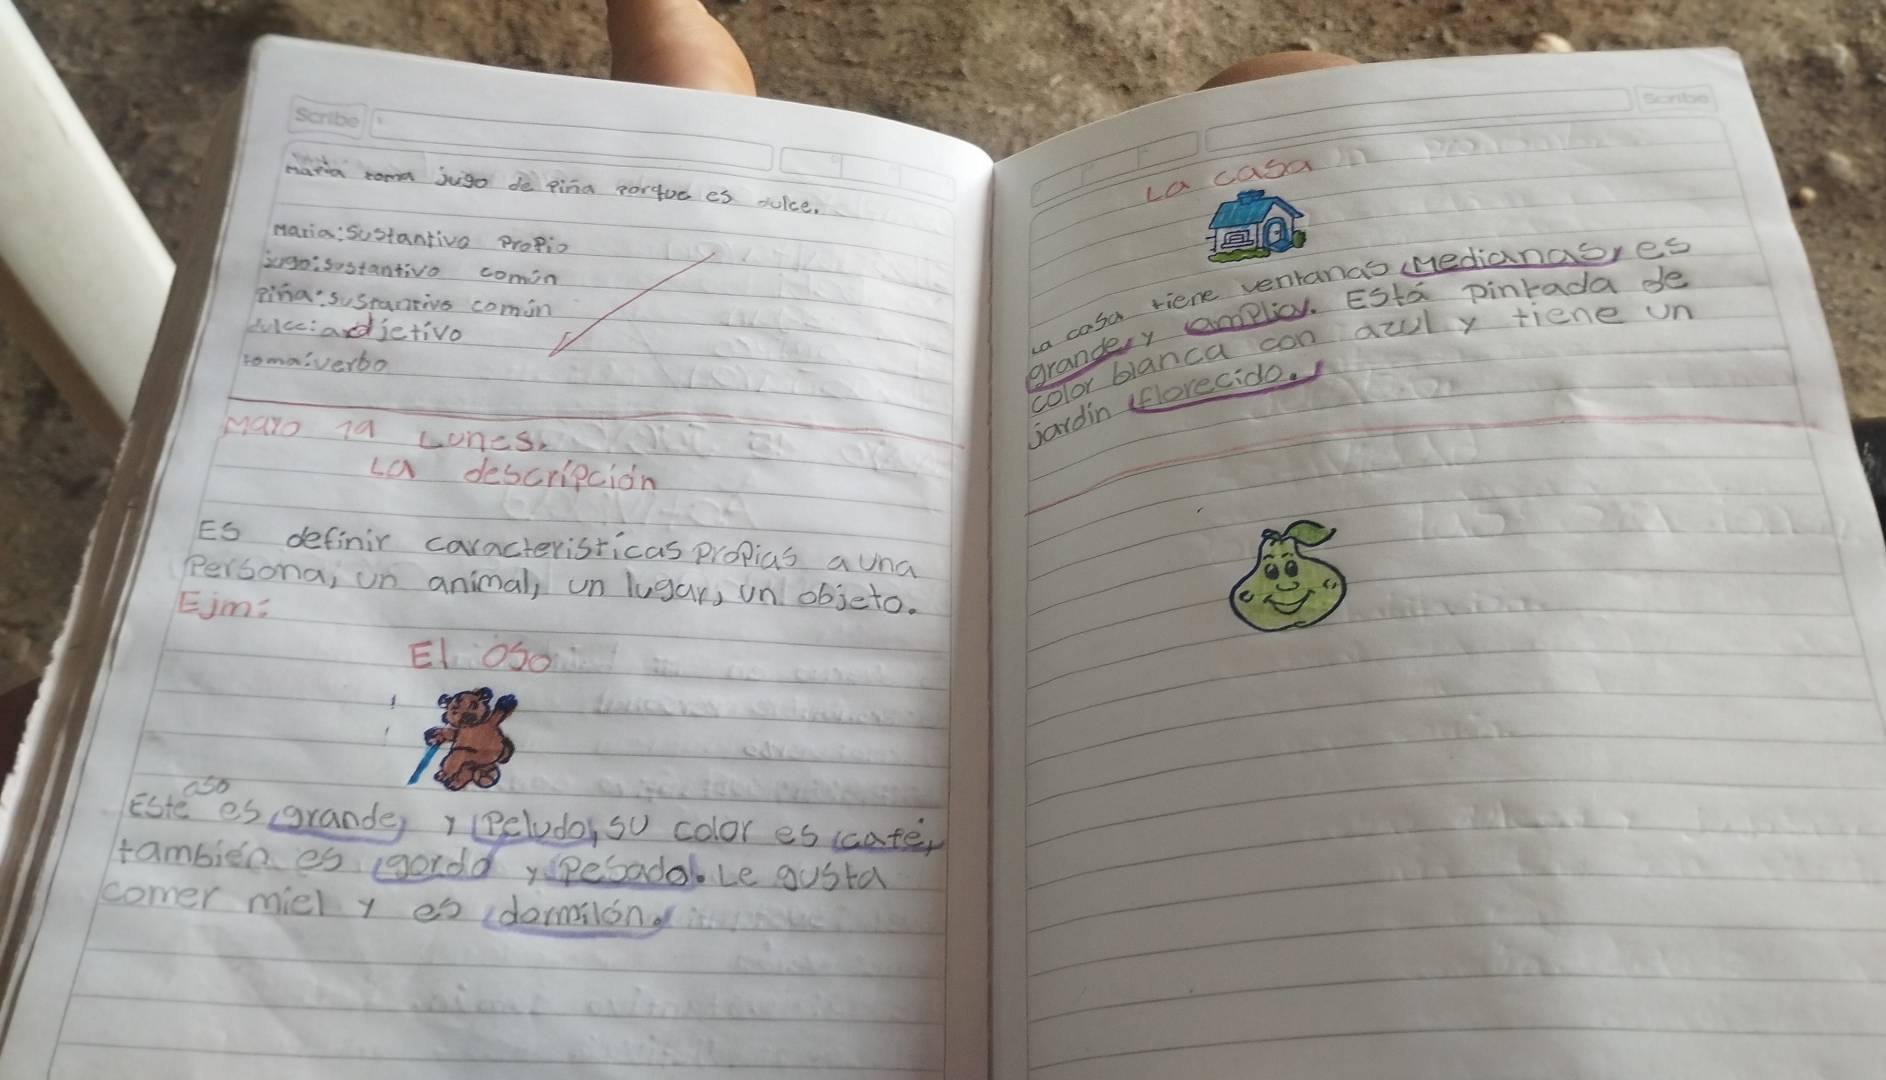 Scribe
María toma jugo de piña porque es dulce.
María: Sustantivo Propio
jugo: sustantivo común
piña: sustantivo común
dulce: adjetivo
toma: verbo
Mayo 19 Lunes.
La descripción
Es definir características propias a una
Persona, un animal, un lugar, un objeto.
Ejm:
El oso
oso
Este es grande, y peludo, su color es café,
también es gordo y pesado. Le gusta
comer miel y es dormilón.
Scribe
La casa
La casa tiene ventanas Medianas, es
grande, y amplia. Está pintada de
color blanca con azul y tiene un
jardín florecido.